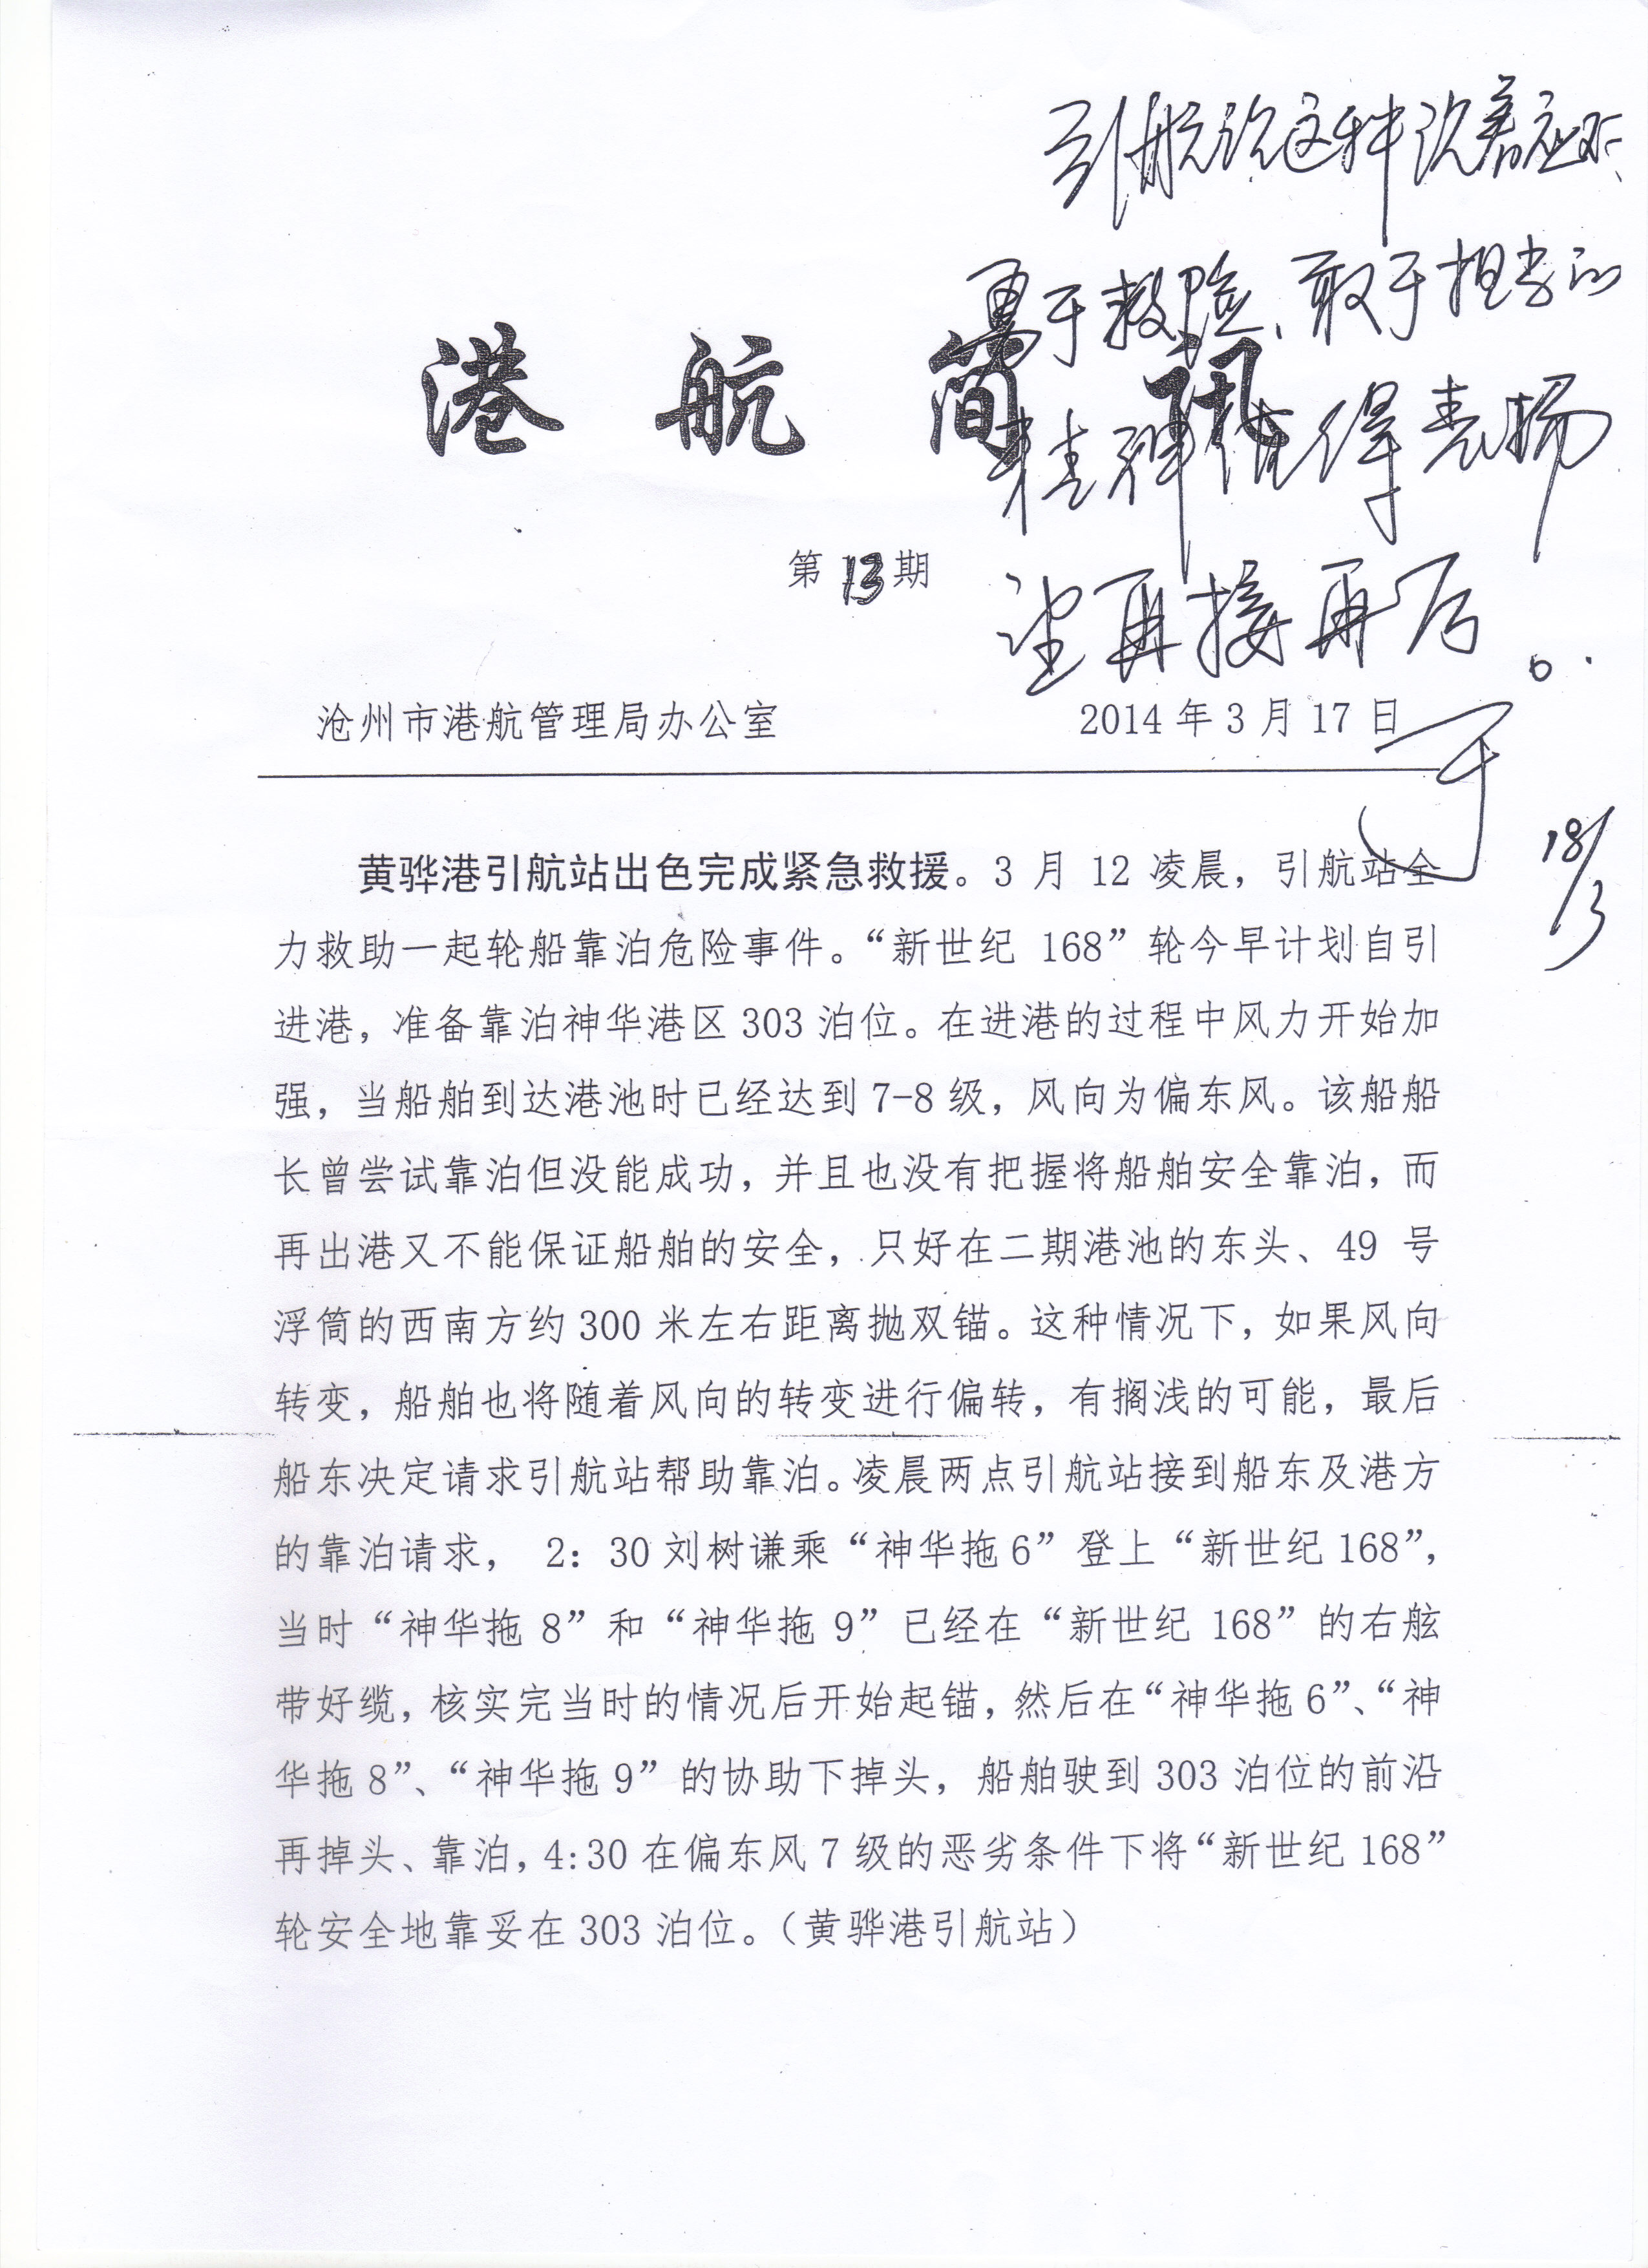 引航站这种沉着应对、
勇于救险、敢于担当的
精神值得表扬
望再接再厉。
于
18/3
港航简讯
第13期
沧州市港航管理局办公室 2014年3月17日
黄骅港引航站出色完成紧急救援。3月12凌晨，引航站全
力救助一起轮船靠泊危险事件。“新世纪 168”轮今早计划自引
进港，准备靠泊神华港区303泊位。在进港的过程中风力开始加
强，当船舶到达港池时已经达到7-8级，风向为偏东风。该船船
长曾尝试靠泊但没能成功，并且也没有把握将船舶安全靠泊，而
再出港又不能保证船舶的安全，只好在二期港池的东头、49 号
浮筒的西南方约300米左右距离抛双锚。这种情况下，如果风向
转变，船舶也将随着风向的转变进行偏转，有搁浅的可能，最后
船东决定请求引航站帮助靠泊。凌晨两点引航站接到船东及港方
的靠泊请求， 2：30刘树谦乘“神华拖6”登上“新世纪168”，
当时“神华拖 8”和“神华拖 9”已经在“新世纪 168”的右舷
带好缆，核实完当时的情况后开始起锚，然后在“神华拖6”、“神
华拖8”、“神华拖9”的协助下掉头，船舶驶到303泊位的前沿
再掉头、靠泊，4:30在偏东风7级的恶劣条件下将“新世纪168”
轮安全地靠妥在303泊位。（黄骅港引航站）